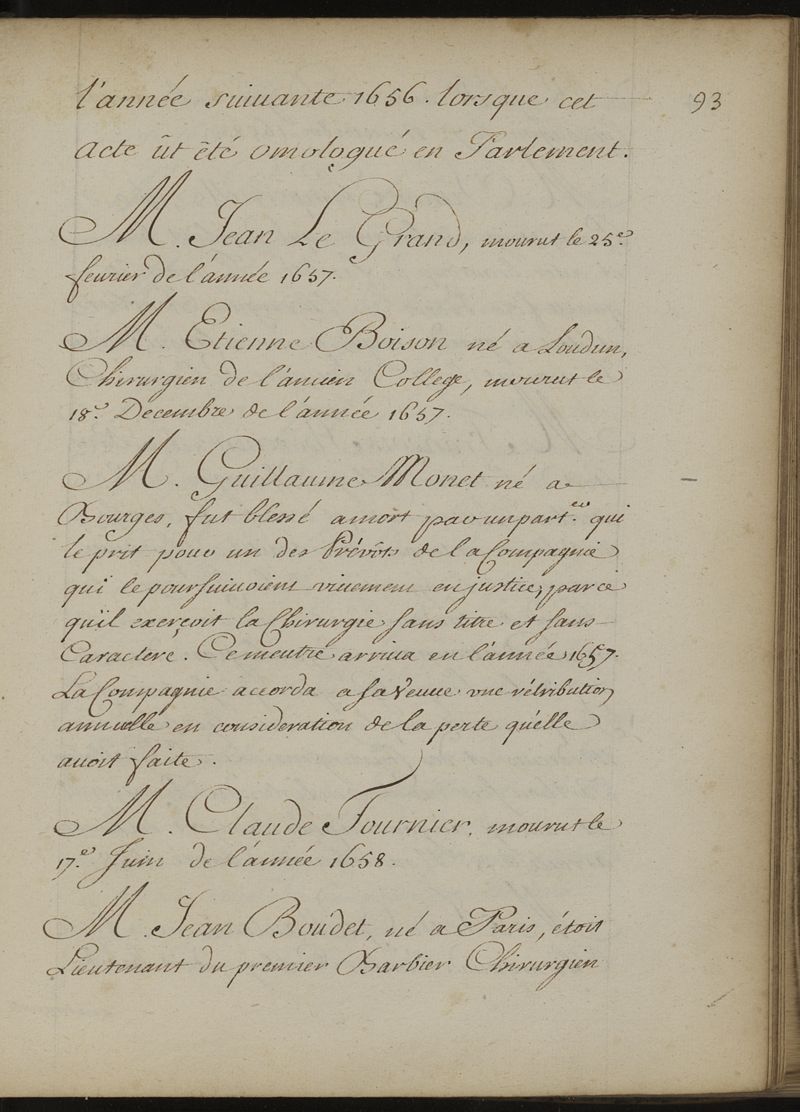 l'année suivante 1656. lorsque cet
93
acte ût été omologué en Parlement.
M. Jean Le Grand, mourut le 25.e
fevrier de l'année 1657.
M. Etienne Boison né a Loudun,
Chirurgien de l'ancien College, mourut le
18.e Decembre de l'année 1657.
M. Guillaume Monet né a
Bourges, fut blessé a mort par un part.er qui
le prit pour un des Prévôts de la Compagnie
qui le poursuivoient vivement en justice, parce
qu'il exerçoit la Chirurgie sans titre et sans
Caractere. Ce meutre arriva en l'année 1657.
La Compagnie accorda a sa Veuve une rétribution
annuelle en consideration de la perte qu'elle
avoit faite.
M. Claude Fournier, mourut le
17.e Juin de l'année 1658.
M. Jean Boudet, né a Paris, étoit
Lieutenant du premier Barbier Chirurgien